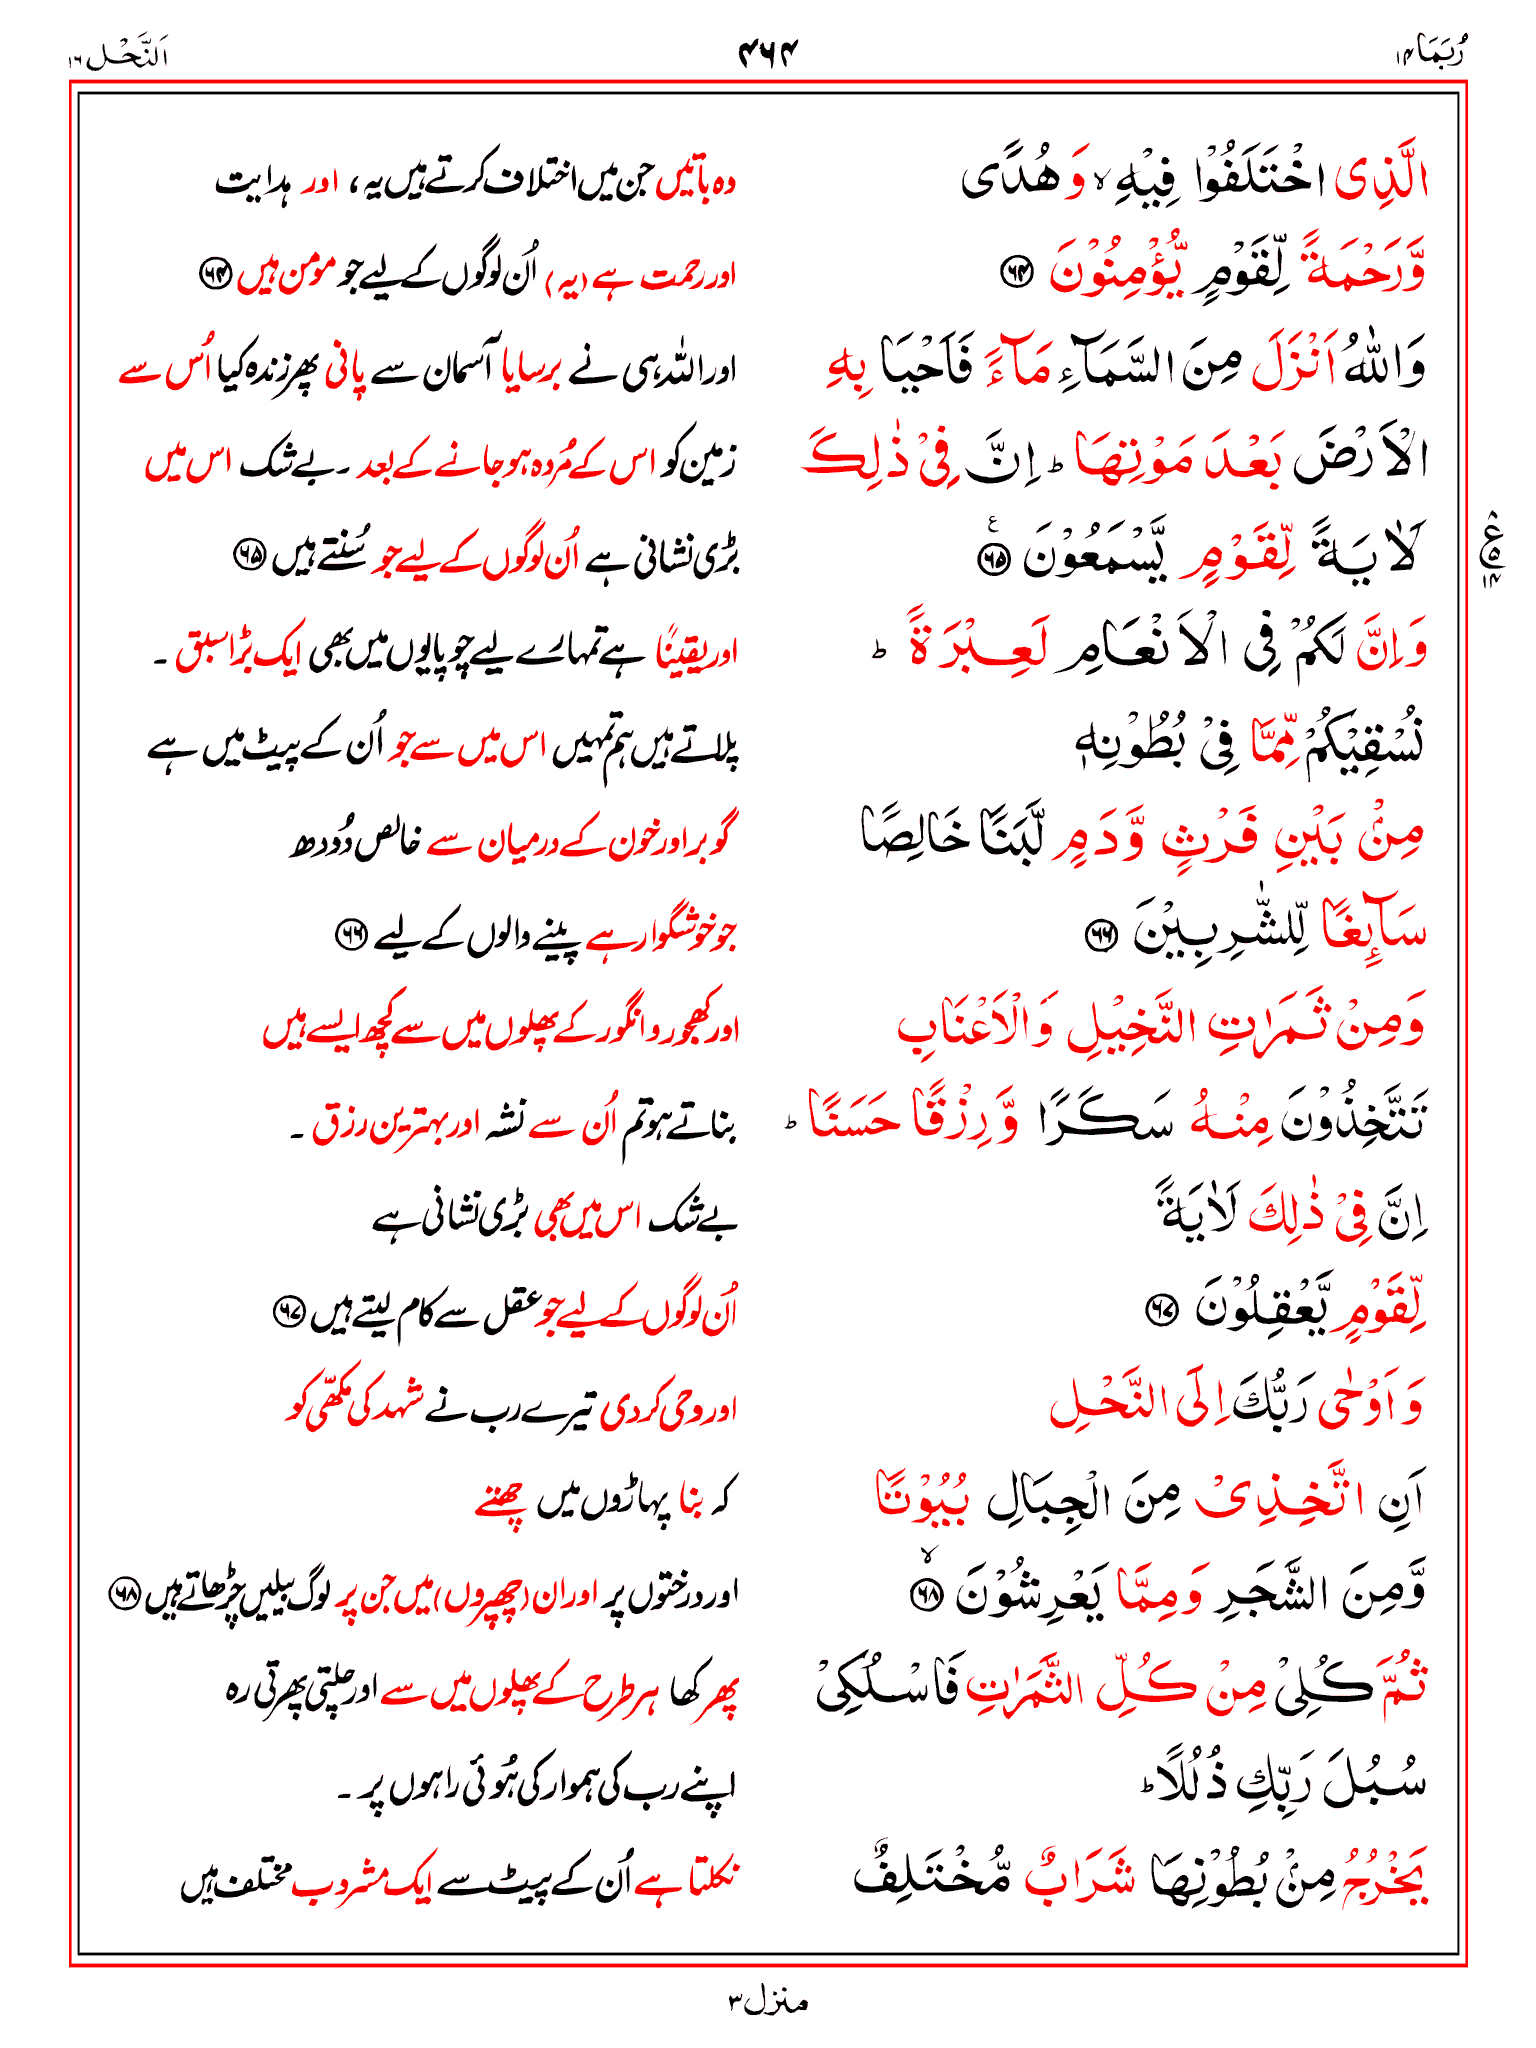 رُبَمَا ۱۴
۴۶۴
اَلنَّحْل ۱۶
الَّذِی اخْتَلَفُوْا فِیْهِ ۙ وَ هُدًی
وہ باتیں جن میں اختلاف کرتے ہیں یہ، اور ہدایت
وَّرَحْمَةً لِّقَوْمٍ یُّؤْمِنُوْنَ ۶۴
اور رحمت ہے (یہ) اُن لوگوں کے لیے جو مومن ہیں ۶۴
وَاللّٰهُ اَنْزَلَ مِنَ السَّمَآءِ مَآءً فَاَحْیَا بِهِ
اور اللہ ہی نے برسایا آسمان سے پانی پھر زندہ کیا اُس سے
الْاَرْضَ بَعْدَ مَوْتِهَا ؕ اِنَّ فِیْ ذٰلِكَ
زمین کو اس کے مُردہ ہوجانے کے بعد ۔ بے شک اس میں
لَاٰیَةً لِّقَوْمٍ یَّسْمَعُوْنَ ۶۵ ع
بڑی نشانی ہے اُن لوگوں کے لیے جو سُنتے ہیں ۶۵
۸
ع ۵
۱۴
وَ اِنَّ لَكُمْ فِی الْاَنْعَامِ لَعِبْرَةً ؕ
اور یقینًا ہے تمہارے لیے چوپایوں میں بھی ایک بڑا سبق ۔
نُسْقِیْكُمْ مِّمَّا فِیْ بُطُوْنِهٖ
پلاتے ہیں ہم تمہیں اس میں سے جو اُن کے پیٹ میں ہے
مِنْۢ بَیْنِ فَرْثٍ وَّ دَمٍ لَّبَنًا خَالِصًا
گوبر اور خون کے درمیان سے خالص دُودھ
سَآىِٕغًا لِّلشّٰرِبِیْنَ ۶۶
جو خوشگوار ہے پینے والوں کے لیے ۶۶
وَ مِنْ ثَمَرٰتِ النَّخِیْلِ وَالْاَعْنَابِ
اور کھجور و انگور کے پھلوں میں سے کچھ ایسے ہیں
تَتَّخِذُوْنَ مِنْهُ سَكَرًا وَّ رِزْقًا حَسَنًا ؕ
بناتے ہو تم اُن سے نشہ اور بہترین رزق ۔
اِنَّ فِیْ ذٰلِكَ لَاٰیَةً
بے شک اس میں بھی بڑی نشانی ہے
لِّقَوْمٍ یَّعْقِلُوْنَ ۶۷
اُن لوگوں کے لیے جو عقل سے کام لیتے ہیں ۶۷
وَ اَوْحٰی رَبُّكَ اِلَی النَّحْلِ
اور وحی کر دی تیرے رب نے شہد کی مکھّی کو
اَنِ اتَّخِذِیْ مِنَ الْجِبَالِ بُیُوْتًا
کہ بنا پہاڑوں میں چھتے
وَّمِنَ الشَّجَرِ وَمِمَّا یَعْرِشُوْنَ ۶۸ ۙ
اور درختوں پر اور ان (چھپروں) میں جن پر لوگ بیلیں چڑھاتے ہیں ۶۸
ثُمَّ كُلِیْ مِنْ كُلِّ الثَّمَرٰتِ فَاسْلُكِیْ
پھر کھا ہر طرح کے پھلوں میں سے اور چلتی پھرتی رہ
سُبُلَ رَبِّكِ ذُلُلًا ؕ
اپنے رب کی ہموار کی ہُوئی راہوں پر ۔
یَخْرُجُ مِنْۢ بُطُوْنِهَا شَرَابٌ مُّخْتَلِفٌ
نکلتا ہے اُن کے پیٹ سے ایک مشروب مختلف ہیں
منزل ۳